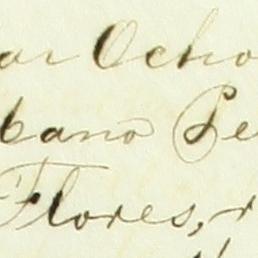 ar Ocho
bano Pe
Flores, r